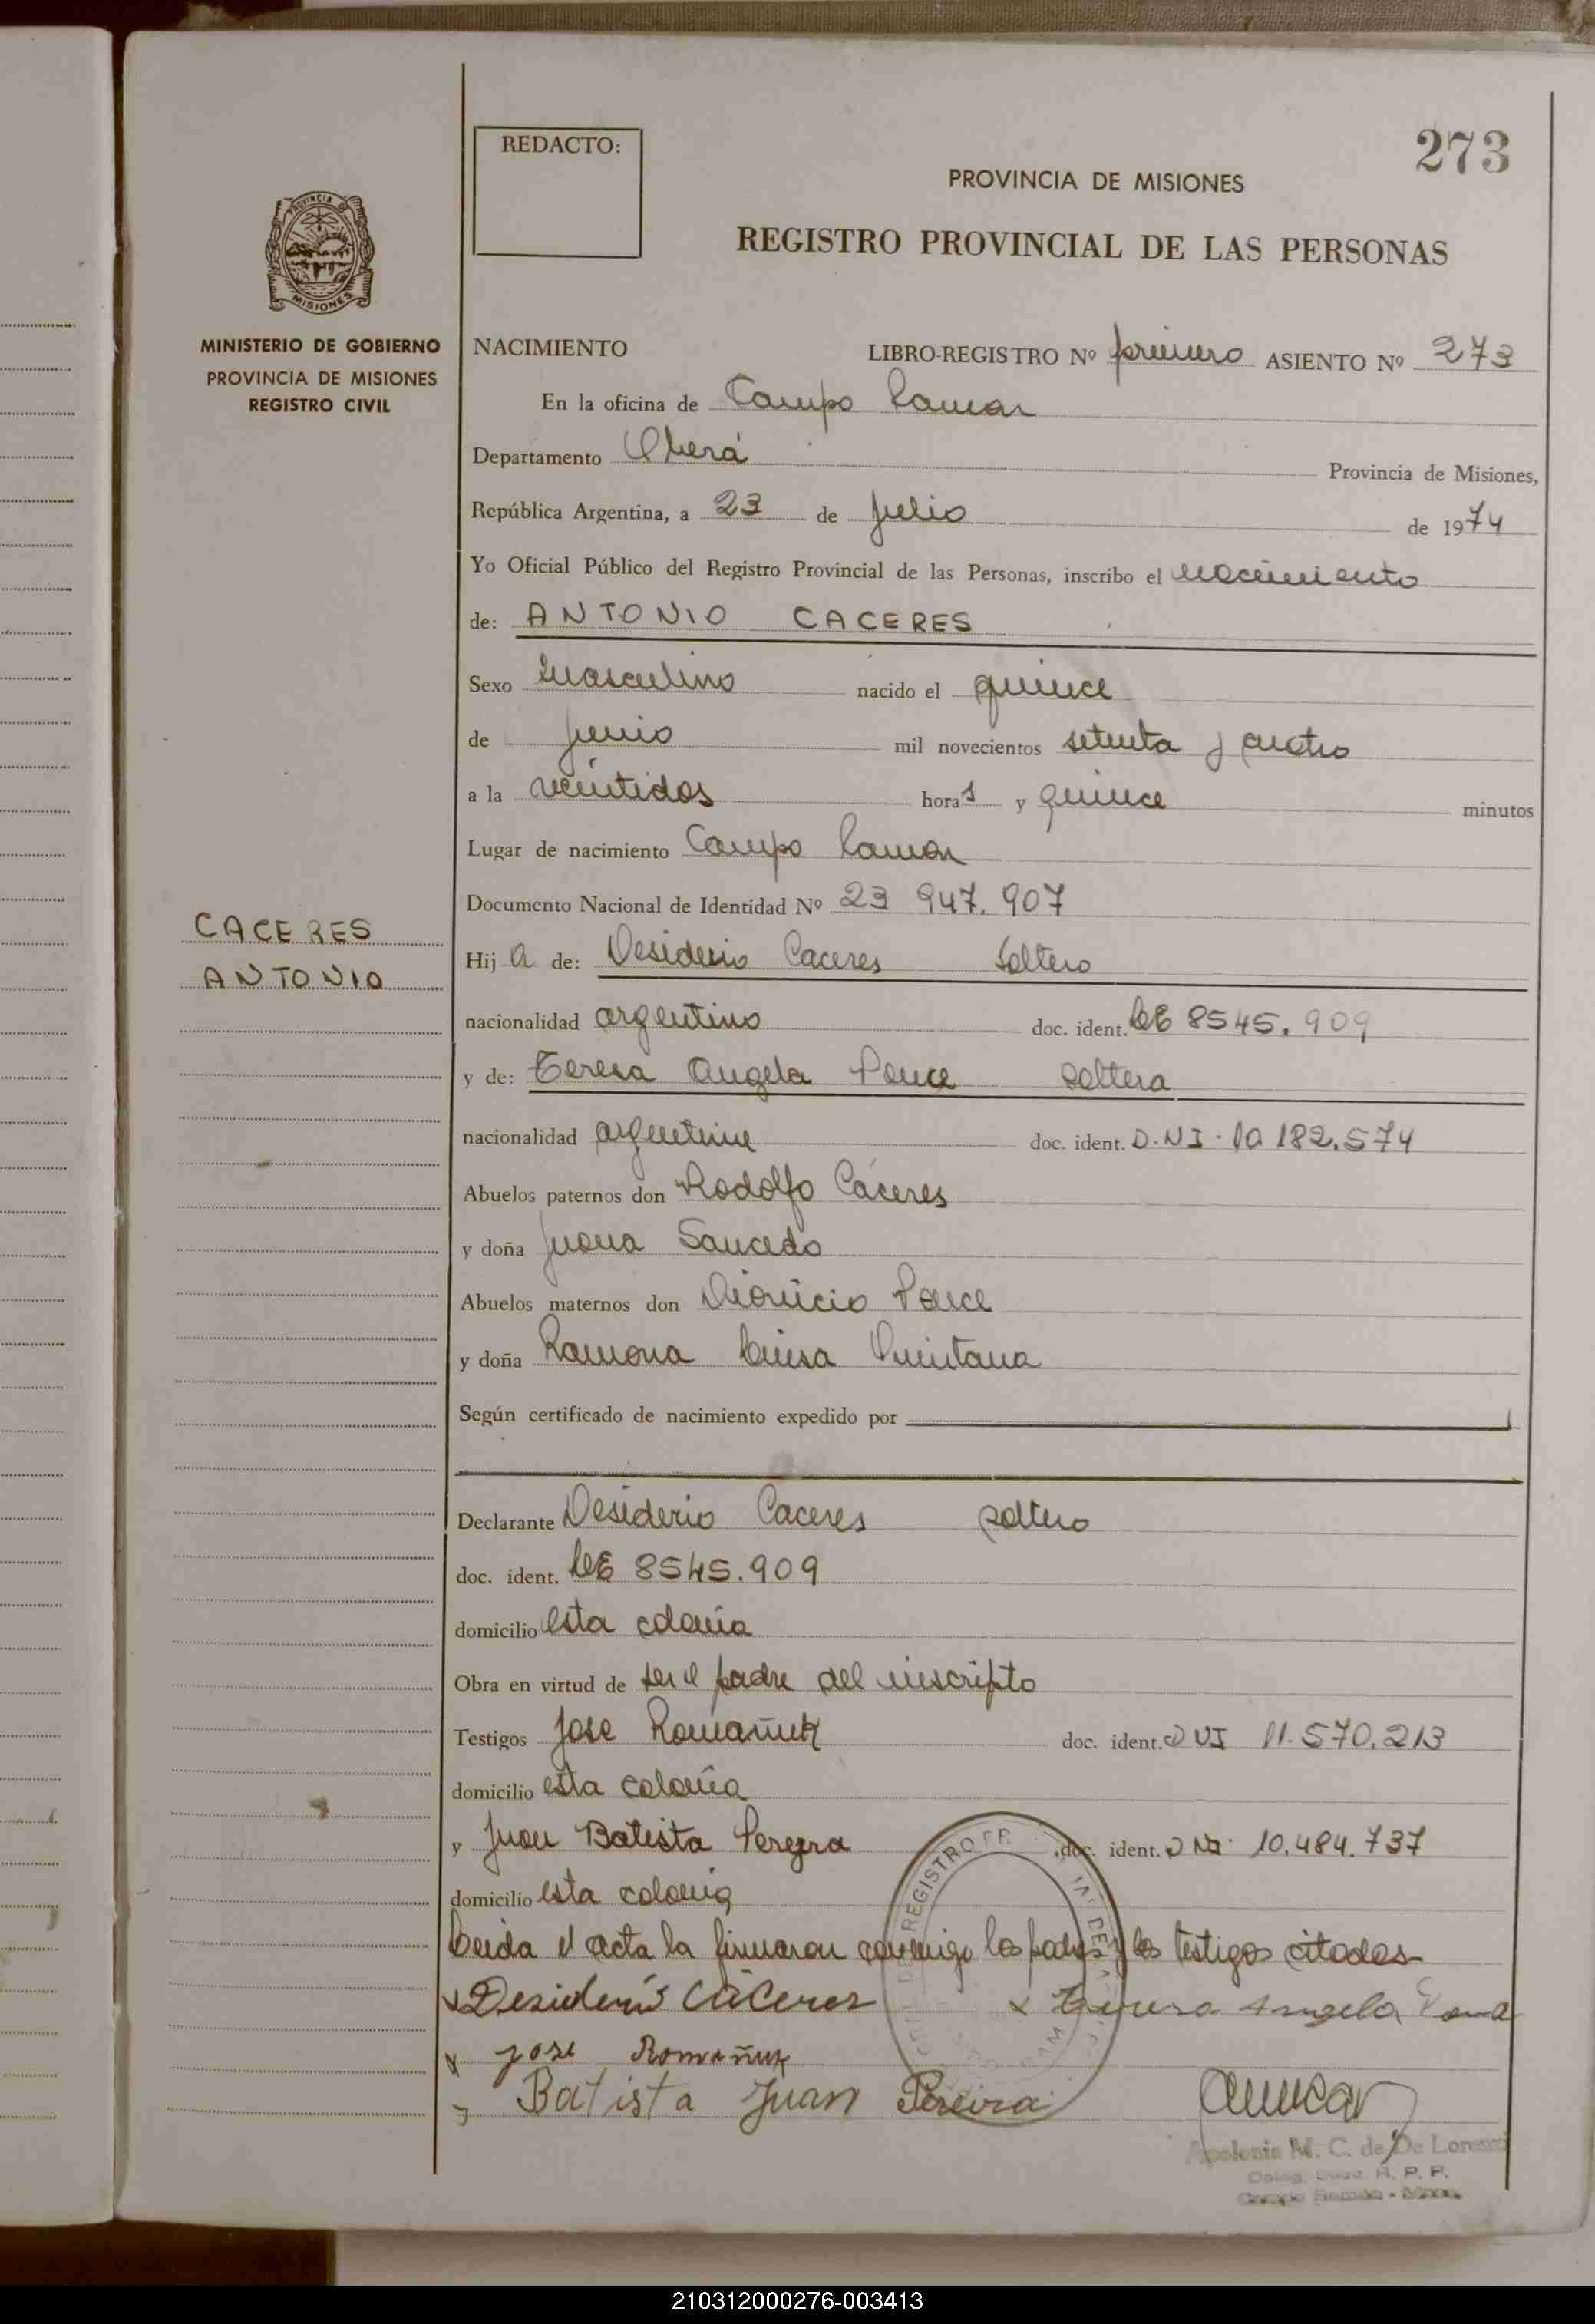 REDACTO:
273
PROVINCIA DE MISIONES
REGISTRO PROVINCIAL DE LAS PERSONAS
PROVINCIA DE
MISIONES
MINISTERIO DE GOBIERNO
PROVINCIA DE MISIONES
REGISTRO CIVIL
NACIMIENTO LIBRO-REGISTRO Nº primero ASIENTO Nº 273
En la oficina de Campo Ramon
Departamento Oberá Provincia de Misiones,
República Argentina, a 23 de Julio de 1974
Yo Oficial Público del Registro Provincial de las Personas, inscribo el nacimiento
de: ANTONIO CACERES
Sexo masculino nacido el quince
de junio mil novecientos setenta y cuatro
a la veintidos horas y quince minutos
Lugar de nacimiento Campo Ramon
Documento Nacional de Identidad Nº 23 947.907
CACERES
ANTONIO
Hij a de: Desiderio Caceres soltero
nacionalidad argentino doc. ident. LE 8545.909
y de: Teresa Angela Ponce soltera
nacionalidad argentina doc. ident. D.NI. 10 182.574
Abuelos paternos don Rodolfo Cáceres
y doña Juana Saucedo
Abuelos maternos don Dionicio Ponce
y doña Ramona Luisa Quintana
Según certificado de nacimiento expedido por
Declarante Desiderio Caceres soltero
doc. ident. LE 8545.909
domicilio esta colonia
Obra en virtud de ser el padre del inscripto
Testigos Jose Romañuk doc. ident. DNI 11.570.213
domicilio esta colonia
y Juan Batista Pereyra doc. ident. DNI 10.484.737
domicilio esta colonia
Leida el acta la firmaron conmigo los padres y los testigos citados
x Desiderio Caceres x Teresa Angela Ponce
x jose Romañuk
Batista Juan Pereira
Apolonia M. C. de De Lorenzi
R. P. P.
Campo Ramón - Mnes.
210312000276-003413